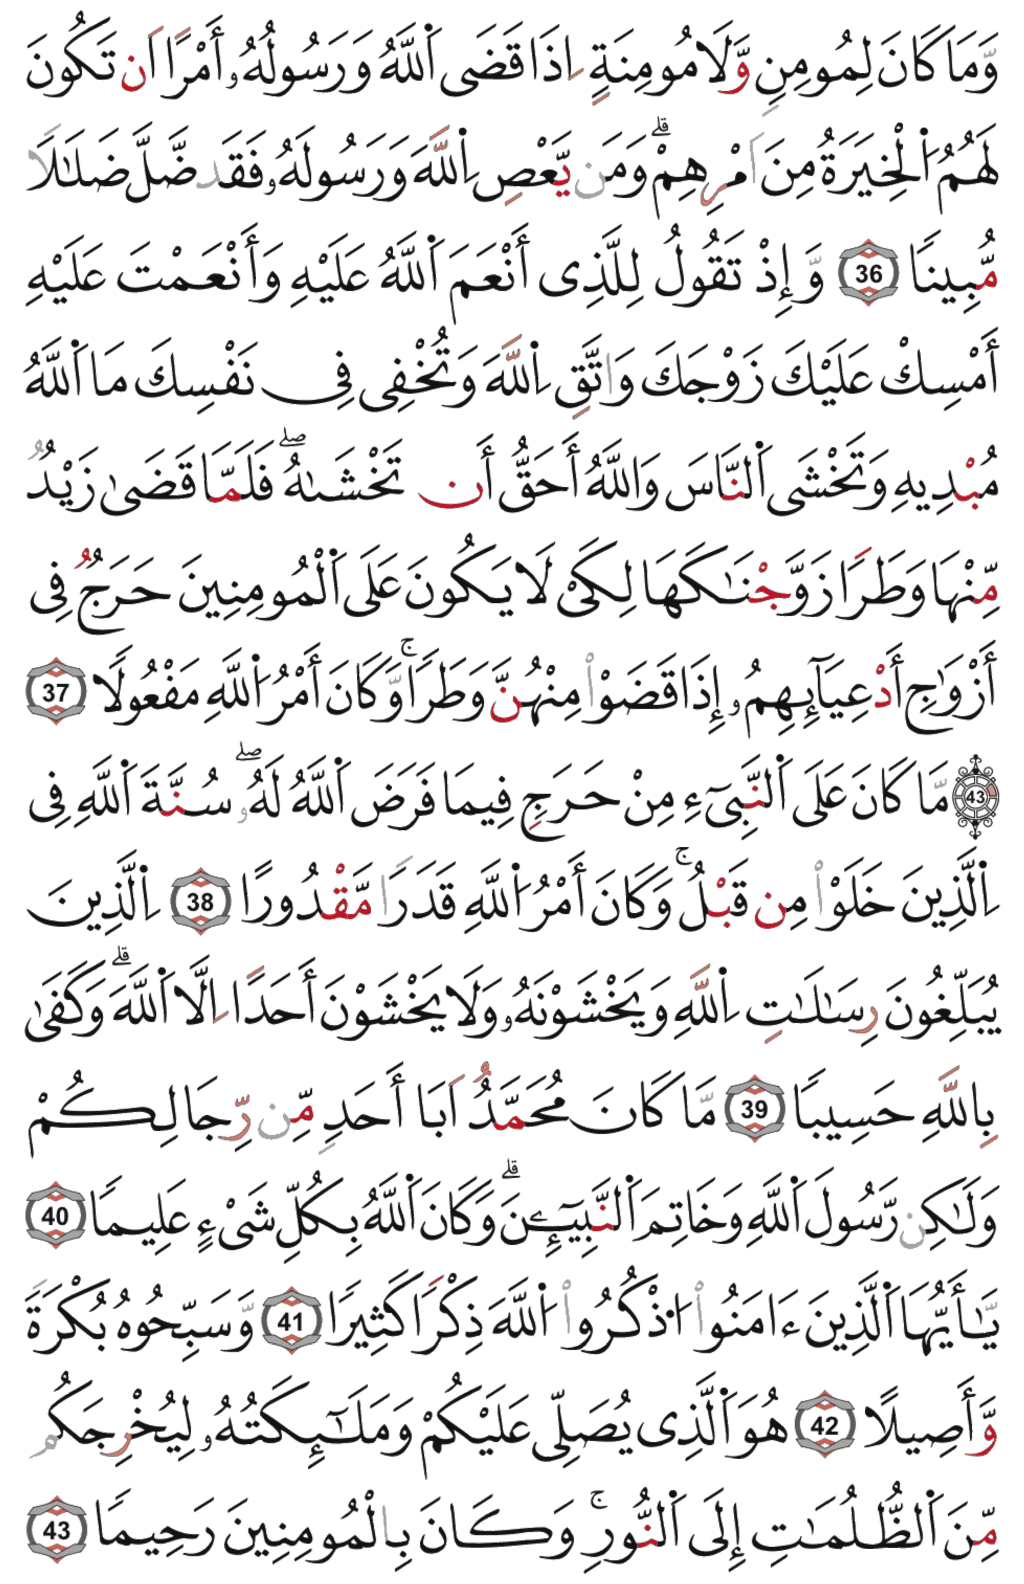 وَّمَا كَانَ لِمُومِنٍ وَّلَا مُومِنَةٍ اِذَا قَضَى اَ۬للَّهُ وَرَسُولُهُۥ أَمْرًا اَن تَكُونَ
لَهُمُ اُ۬لْخِيَرَةُ مِنَ اَمْرِهِمْۖ وَمَن يَّعْصِ اِ۬للَّهَ وَرَسُولَهُۥ فَقَد ضَّلَّ ضَلَٰلًا
مُّبِينًا 36 وَّإِذْ تَقُولُ لِلَّذِى أَنْعَمَ اَ۬للَّهُ عَلَيْهِ وَأَنْعَمْتَ عَلَيْهِ
أَمْسِكْ عَلَيْكَ زَوْجَكَ وَاتَّقِ اِ۬للَّهَ وَتُخْفِى فِى نَفْسِكَ مَا اَ۬للَّهُ
مُبْدِيهِ وَتَخْشَى اَ۬لنَّاسَ وَاللَّهُ أَحَقُّ أَن تَخْشَىٰهُۖ فَلَمَّا قَضَىٰ زَيْدٌ
مِّنْهَا وَطَرًا زَوَّجْنَٰكَهَا لِكَىْ لَا يَكُونَ عَلَى اَ۬لْمُومِنِينَ حَرَجٌ فِى
أَزْوَٰجِ أَدْعِيَآئِهِمُۥ إِذَا قَضَوْا۟ مِنْهُنَّ وَطَرًاۚ وَّكَانَ أَمْرُ اُ۬للَّهِ مَفْعُولًا 37
43 مَّا كَانَ عَلَى اَ۬لنَّبِىٓءِ مِنْ حَرَجٍ فِيمَا فَرَضَ اَ۬للَّهُ لَهُۥۖ سُنَّةَ اَ۬للَّهِ فِى
اِ۬لَّذِينَ خَلَوْا۟ مِن قَبْلُۚ وَكَانَ أَمْرُ اُ۬للَّهِ قَدَرًا مَّقْدُورًا 38 اِ۬لَّذِينَ
يُبَلِّغُونَ رِسَٰلَٰتِ اِ۬للَّهِ وَيَخْشَوْنَهُۥ وَلَا يَخْشَوْنَ أَحَدًا اِلَّا اَ۬للَّهَۖ وَكَفَىٰ
بِاللَّهِ حَسِيبًا 39 مَّا كَانَ مُحَمَّدٌ اَبَا أَحَدٍ مِّن رِّجَالِكُمْ
وَلَٰكِن رَّسُولَ اَ۬للَّهِ وَخَاتِمَ اَ۬لنَّبِيٓـِٕينَۖ وَكَانَ اَ۬للَّهُ بِكُلِّ شَىْءٍ عَلِيمًا 40
يَّٰأَيُّهَا اَ۬لَّذِينَ ءَامَنُوا۟ اُ۟ذْكُرُوا۟ اُ۬للَّهَ ذِكْرًا كَثِيرًا 41 وَّسَبِّحُوهُ بُكْرَةً
وَّأَصِيلًا 42 هُوَ اَ۬لَّذِى يُصَلِّى عَلَيْكُمْ وَمَلَٰٓئِكَتُهُۥ لِيُخْرِجَكُم
مِّنَ اَ۬لظُّلُمَٰتِ إِلَى اَ۬لنُّورِۚ وَكَانَ بِالْمُومِنِينَ رَحِيمًا 43